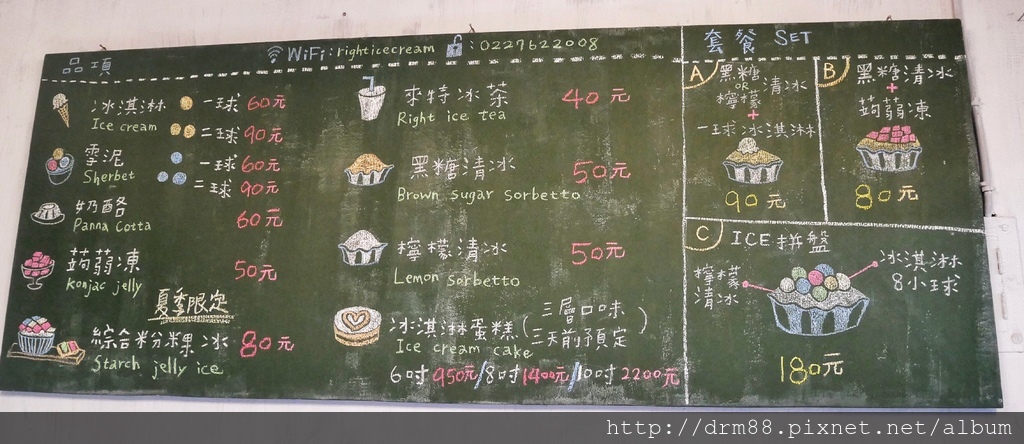 WiFi:righticecream :0227622008
品項
冰淇淋 一球 60元
Ice cream 二球 90元
雪泥 一球 60元
Sherbet 二球 90元
奶酪 60元
Panna Cotta
蒟蒻凍 50元
Konjac jelly
夏季限定
綜合粉粿冰 80元
Starch jelly ice
來特冰茶 40元
Right ice tea
黑糖清冰 50元
Brown sugar sorbetto
檸檬清冰 50元
Lemon sorbetto
冰淇淋蛋糕(三層口味
三天前預定)
Ice cream cake
6吋950元/8吋1400元/10吋2200元
套餐 SET
A
黑糖
OR 清冰
檸檬
+
一球冰淇淋
90元
B
黑糖清冰
+
蒟蒻凍
80元
C
ICE拼盤
檸檬
清冰
冰淇淋
8小球
180元
http://drm88.pixnet.net/album